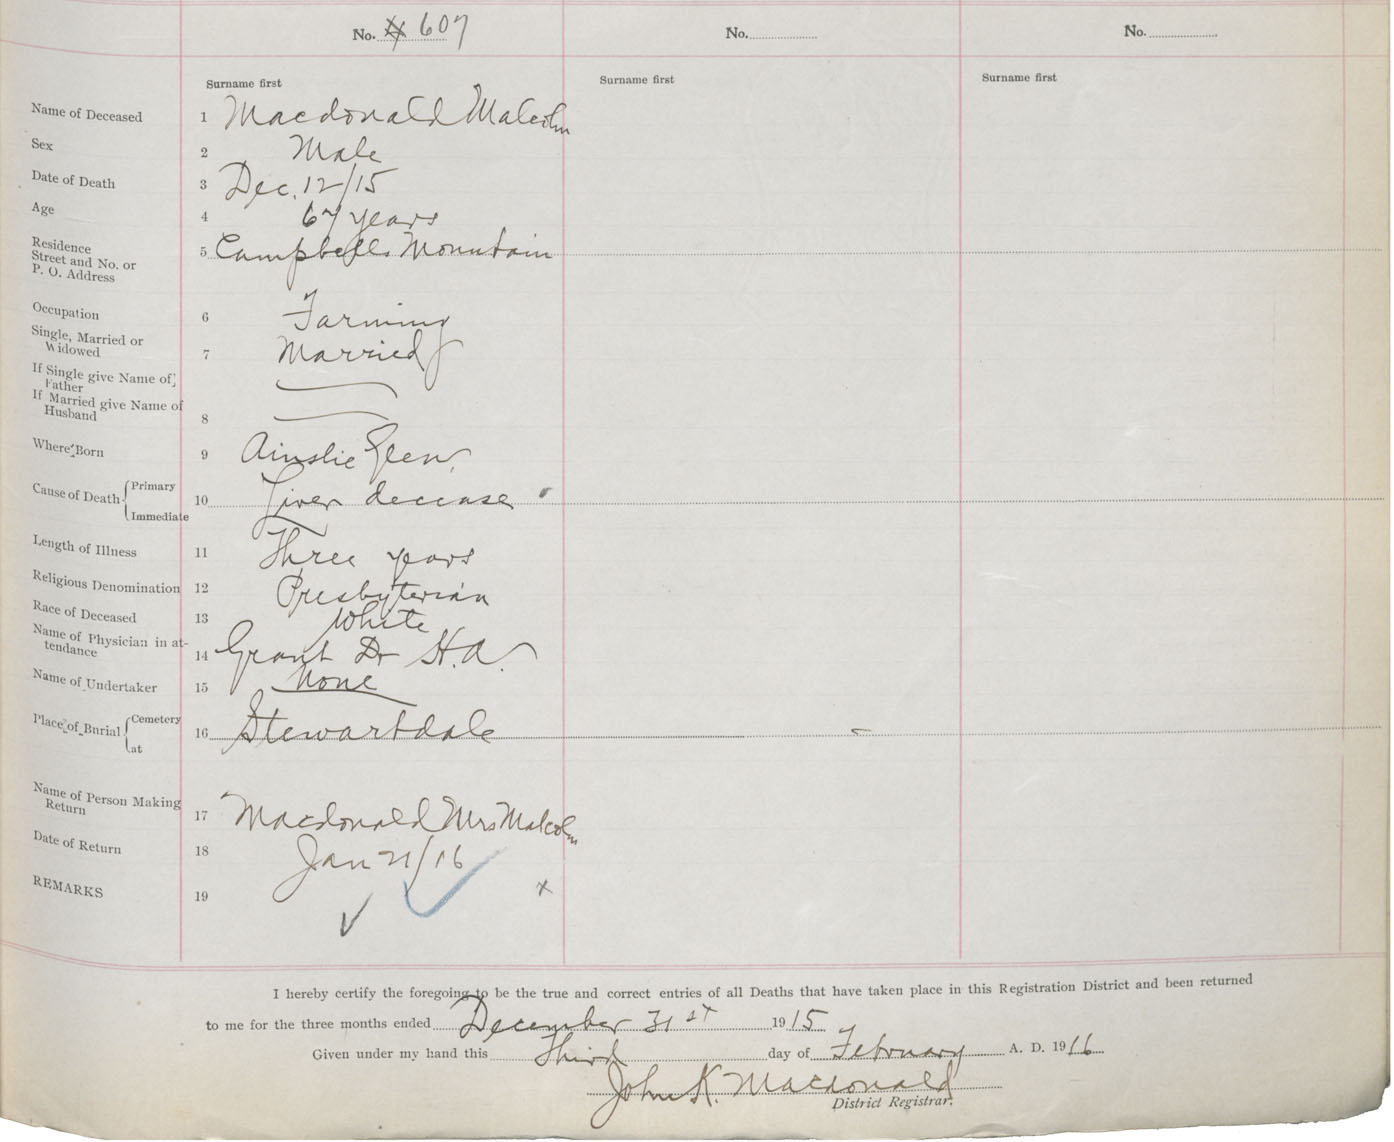 No. 607 No. No.
Surname first Surname first Surname first
Name of Deceased 1 Macdonald Malcolm
Sex 2 Male
Date of Death 3 Dec. 12/15
Age 4 67 years
Residence
Street and No. or
P. O. Address 5 Campbells Mountain
Occupation 6 Farming
Single, Married or
Widowed 7 Married
If Single give Name of
Father
If Married give Name of
Husband 8
Where Born 9 Ainslie Glen
Cause of Death { Primary
Immediate 10 Liver deccase
Length of Illness 11 Three years
Religious Denomination 12 Presbyterian
Race of Deceased 13 White
Name of Physician in at-
tendance 14 Grant Dr H.A.
Name of Undertaker 15 None
Place of Burial { Cemetery
at 16 Stewartdale
Name of Person Making
Return 17 Macdonald Mrs Malcolm
Date of Return 18 Jan 21/16
REMARKS 19
I hereby certify the foregoing to be the true and correct entries of all Deaths that have taken place in this Registration District and been returned
to me for the three months ended December 31st 1915
Given under my hand this Third day of February A. D. 1916
John K. Macdonald
District Registrar.